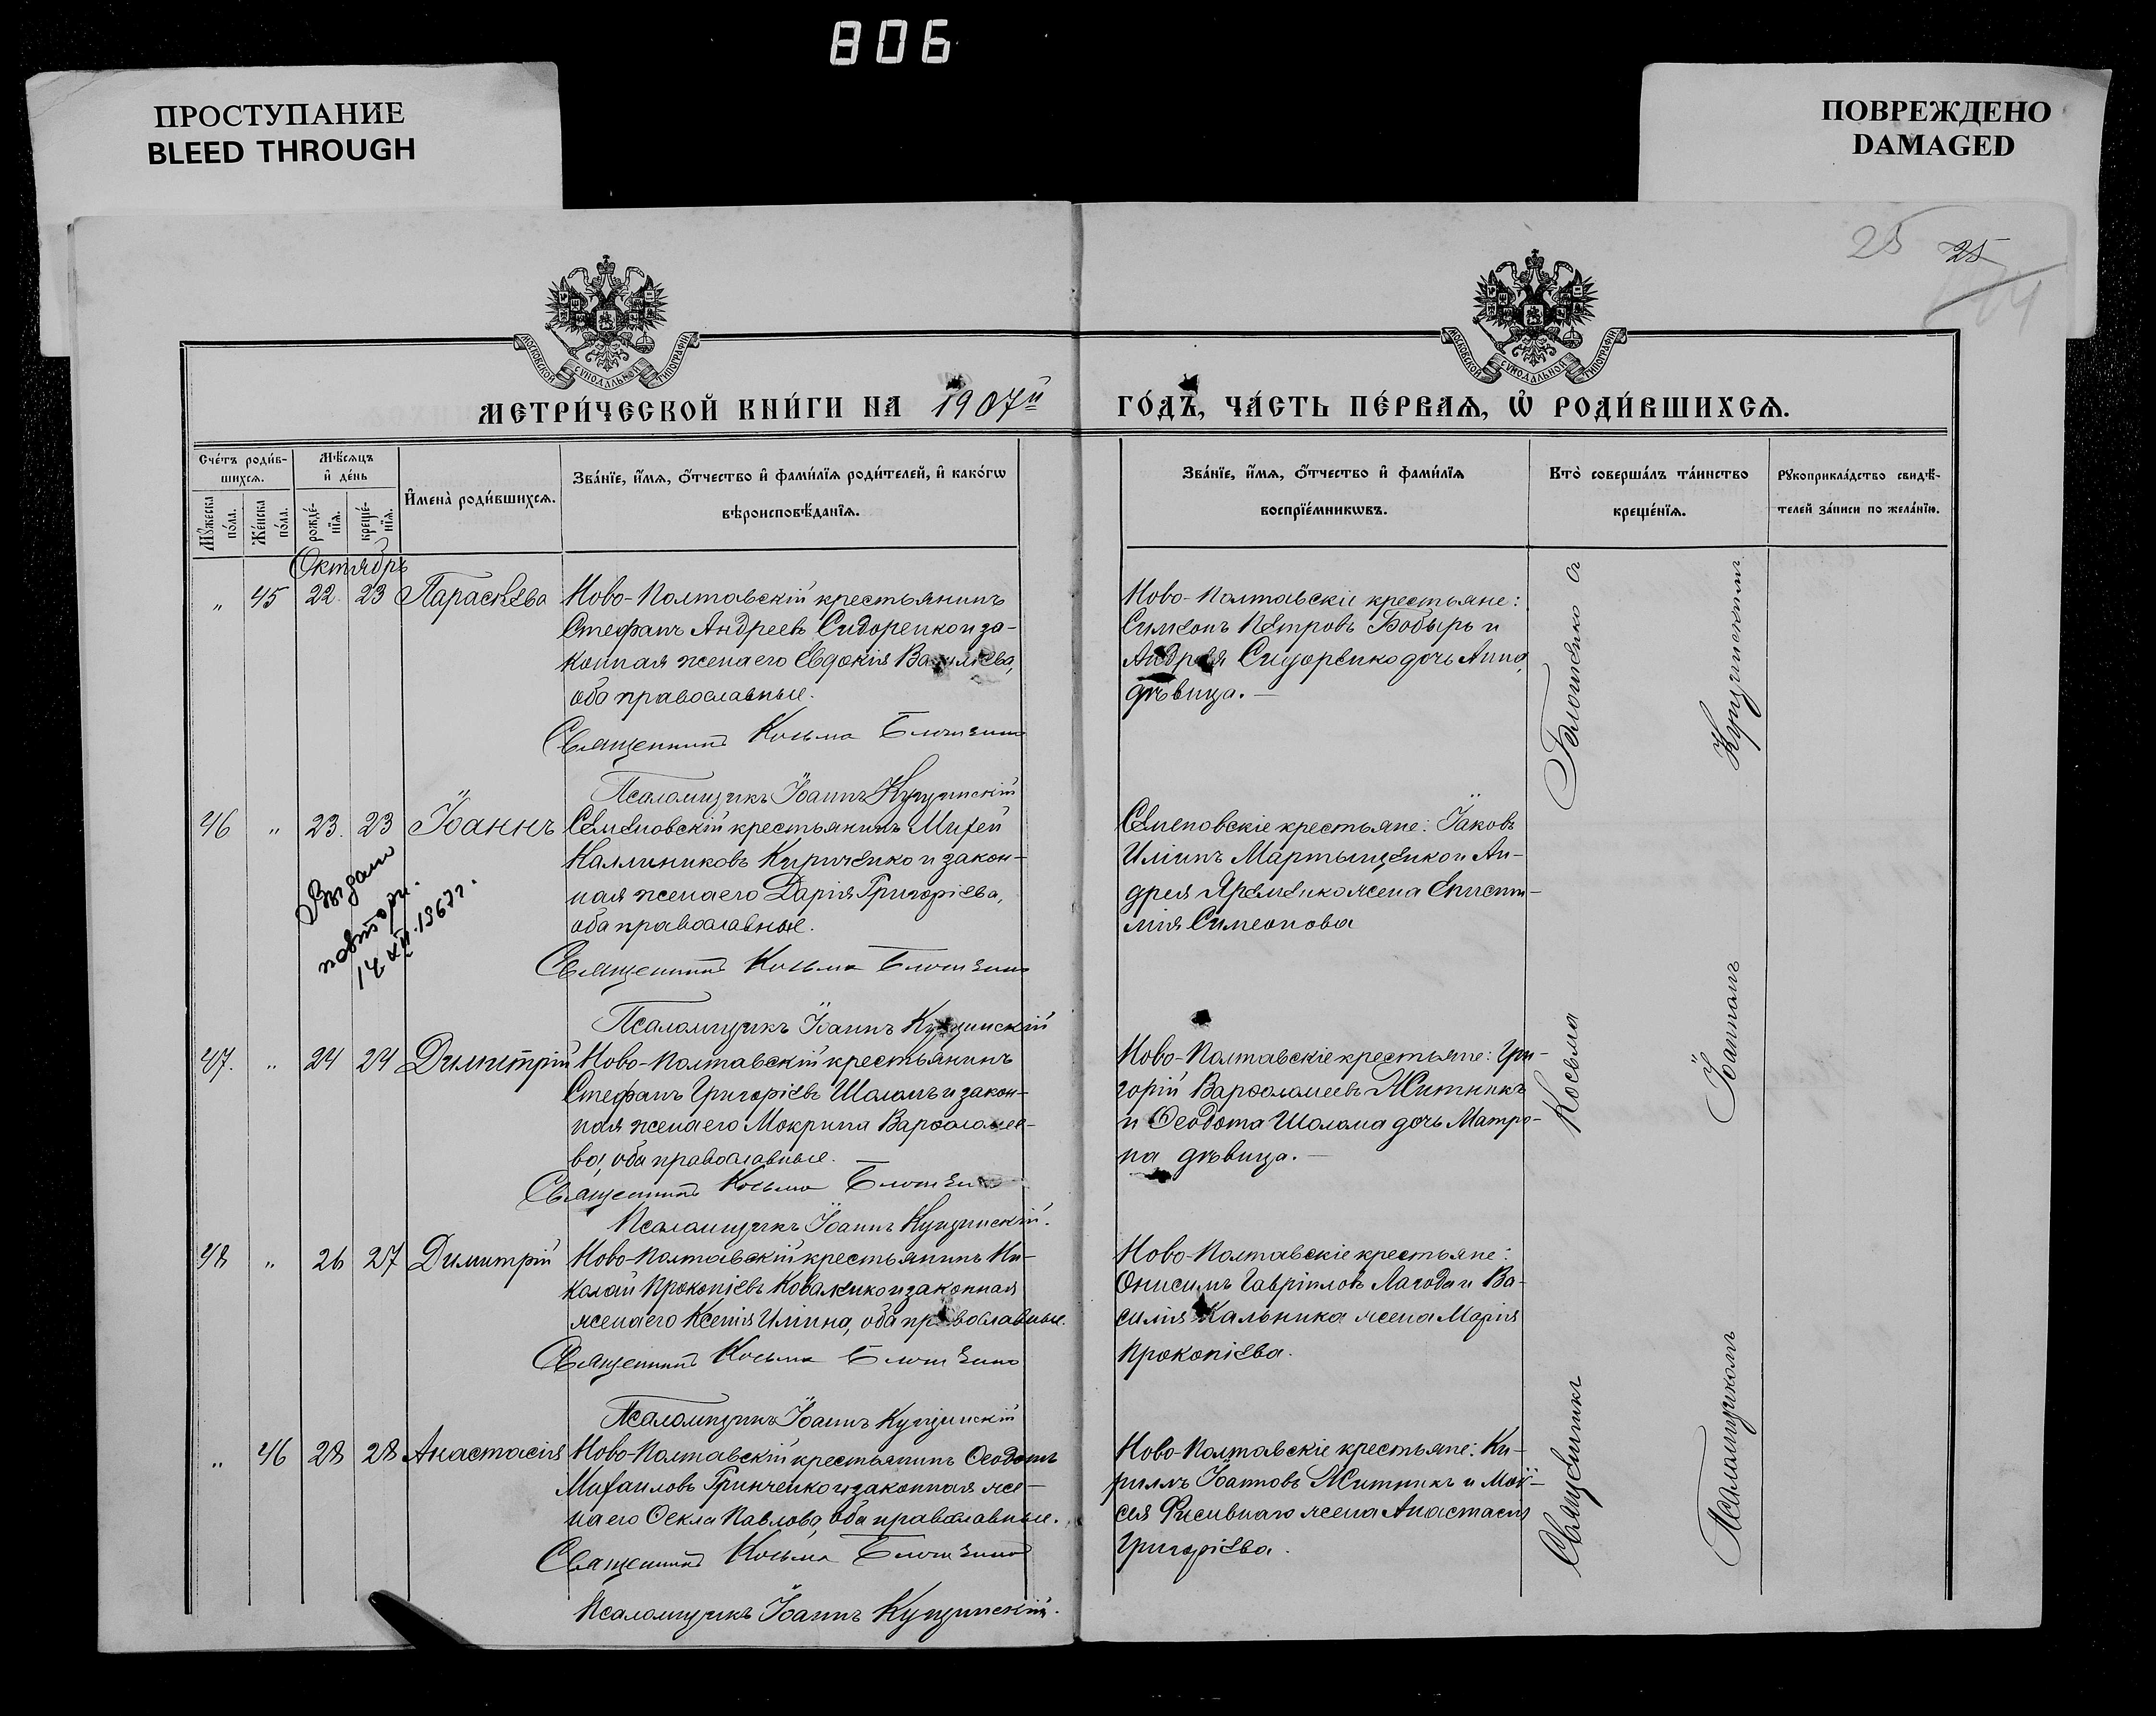 806
ПРОСТУПАНИЕ
BLEED THROUGH
ПОВРЕЖДЕНО
DAMAGED
25 25
МОСКОВСКОЙ СѴНОДАЛЬНОЙ ТИПОГРАФІИ
МОСКОВСКОЙ СѴНОДАЛЬНОЙ ТИПОГРАФІИ
МЕТРИ́ЧЕСКОЙ КНИ́ГИ НА 1907й ГО́ДЪ, ЧА́СТЬ ПЕ́РВАѦ, Ѡ҆ РОДИ́ВШИХСѦ.
Сче́тъ роди́в-
шихсѧ.
Мѣ́сѧцъ
и҆ де́нь
Мꙋ́жеска
по́ла.
Же́нска
по́ла.
рожде́-
нїѧ.
креще́-
нїѧ.
И҆мена̀ роди́вшихсѧ.
Зва́нїе, и҆́мѧ, ѻ҆́тчество и҆ фами́лїѧ роди́телей, и҆ како́гѡ
вѣроисповѣ́данїѧ.
Зва́нїе, и҆́мѧ, ѻ҆́тчество и҆ фами́лїѧ
воспрїе́мникѡвъ.
Кто̀ соверша́лъ та́инство
креще́нїѧ.
Рꙋкоприкла́дство свидѣ́-
телей за́писи по жела́нїю.
Октябрь
„ 45 22 23 Параскева
Ново-Полтавскій крестьянинъ
Стефанъ Андреевъ Сидоренко и за-
конная жена его Евдокія Васильева,
оба православные.
Священникъ Косьма
Псаломщикъ Іоаннъ
Ново-Полтавскіе крестьяне:
Симеонъ Петровъ Бобырь и
Андрея Сидоренко дочь Анна,
дѣвица.
46 „ 23. 23 Іоаннъ
Семеновскій крестьянинъ Михей
Каллиниковъ Кириченко и закон-
ная жена его Дарія Григоріева,
оба православные.
Священникъ Косьма
Псаломщикъ Іоаннъ
Выдано
повторн.
14 XII. 1967г.
Семеновскіе крестьяне: Іаковъ
Иліинъ Мартыщенко и Ан-
дрея Яременко жена Еписти-
мія Симеонова
47. „ 24 24 Димитрій
Ново-Полтавскій крестьянинъ
Стефанъ Григоріевъ Шоломъ и закон-
ная жена его Мокрина Варѳоломее-
ва, оба православные.
Священникъ Косьма
Псаломщикъ Іоаннъ
Ново-Полтавскіе крестьяне: Гри-
горій Варѳоломеевъ Житникъ
и Ѳеодота Шолома дочь Матро-
на дѣвица.
48 „ 26 27 Димитрій
Ново-Полтавскій крестьянинъ Ни-
колай Прокопіевъ Коваленко и законная
жена его Ксенія Иліина, оба православные.
Священникъ Косьма
Псаломщикъ Іоаннъ
Ново-Полтавскіе крестьяне:
Онисимъ Гавріиловъ Лагода и Ва-
силія Кальника жена Марія
Прокопіева.
„ 46 28 28 Анастасія
Ново-Полтавскій крестьянинъ Ѳеодотъ
Михаиловъ Гринченко и законная же-
на его Ѳекла Павлова, оба православные.
Священникъ Косьма
Псаломщикъ Іоаннъ
Ново-Полтавскіе крестьяне: Ки-
риллъ Іоанновъ Житникъ и Мой-
сея жена Анастасія
Григоріева.
Священникъ Косьма
Псаломщикомъ Іоанномъ